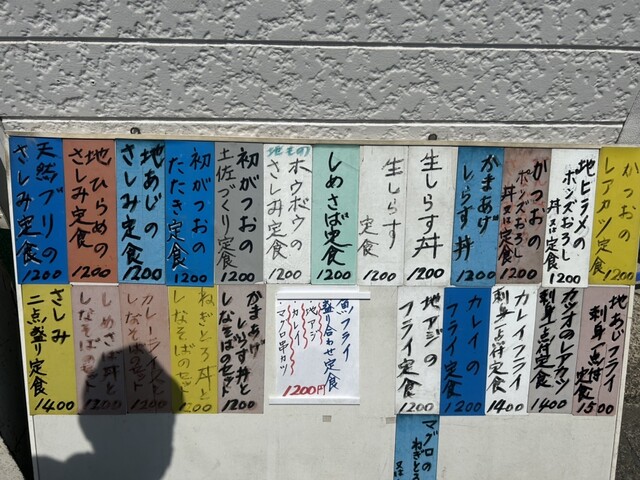 天然ブリの
さしみ定食
1200
地ひらめの
さしみ定食
1200
地あじの
さしみ定食
1200
初がつおの
たたき定食
1200
初がつおの
土佐づくり定食
1200
地もの
ホウボウの
さしみ定食
1200
しめさば定食
1200
生しらす
定食
1200
生しらす丼
1200
かまあげ
しらす丼
1200
かつおの
ポンズおろし
丼又は定食
1200
地ヒラメの
ポンズおろし
丼又は定食
1200
かつおの
レアカツ定食
1200
さしみ
二点盛り定食
1400
しめさば丼と
しなそばのセット
1200
カレーライスと
しなそばのセット
1200
ねぎとろ丼と
しなそばのセット
1200
かまあげ
しらす丼と
しなそばのセット
1200
魚フライ
盛り合わせ定食
地アジ
カレイ
マグロ串カツ
1200円
地アジの
フライ定食
1200
カレイの
フライ定食
1200
カレイフライ
刺身一点付定食
1400
カツオのレアカツ
刺身一点付定食
1400
地あじフライ
刺身一点付定食
1500
マグロの
ねぎとろ
又は